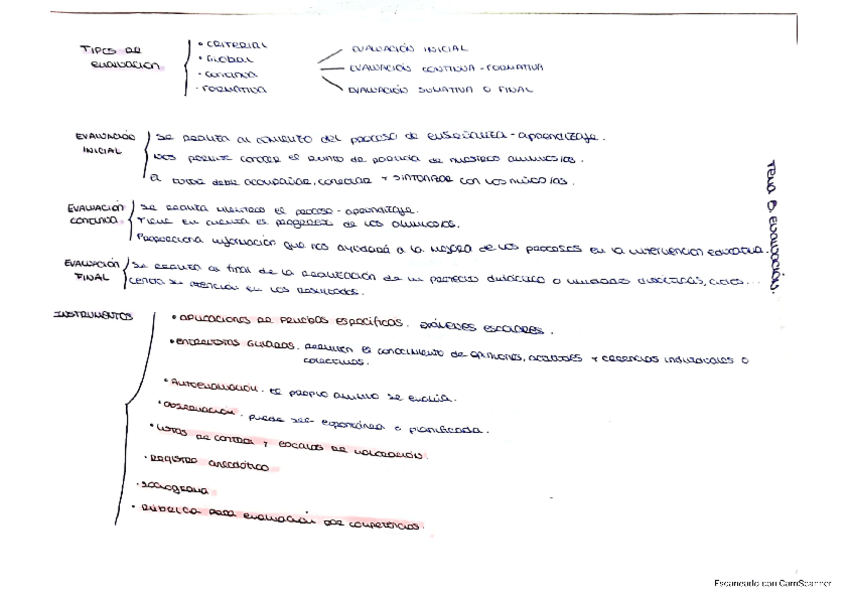 TEMA 8 EVALUACIÓN.
TIPOS DE EVALUACIÓN
• CRITERIAL
• GLOBAL
• CONTINUA
• FORMATIVA
EVALUACIÓN INICIAL
EVALUACIÓN CONTINUA - FORMATIVA
EVALUACIÓN SUMATIVA O FINAL
EVALUACIÓN INICIAL
Se realiza al comienzo del proceso de enseñanza - aprendizaje.
Nos permite conocer el punto de partida de nuestros alumnos/as.
El tutor debe acompañar, conectar y SINTONIZAR con los niños/as.
EVALUACIÓN CONTINUA
Se realiza mientras el proceso - aprendizaje.
Tiene en cuenta el progreso de los alumnos/as.
Proporciona información que nos ayudará a la mejora de los procesos en la intervención educativa.
EVALUACIÓN FINAL
Se realiza al final de la realización de un proyecto didáctico o unidades didácticas, ciclos...
Centra su atención en los resultados.
INSTRUMENTOS
• APLICACIONES DE PRUEBAS ESPECÍFICAS. EXÁMENES ESCOLARES.
• ENTREVISTAS GUIADAS. Permiten el conocimiento de opiniones, actitudes y creencias individuales o
colectivas.
• AUTOEVALUACIÓN. El propio alumno se evalúa.
• OBSERVACIÓN. puede ser espontánea o planificada.
• LISTAS DE CONTROL Y ESCALAS DE VALORACIÓN.
• REGISTRO anecdótico
• Sociograma
• RÚBRICA para evaluación por competencias.
Escaneado con CamScanner